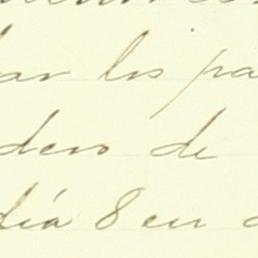 ar los pa
dero de
día 8 en